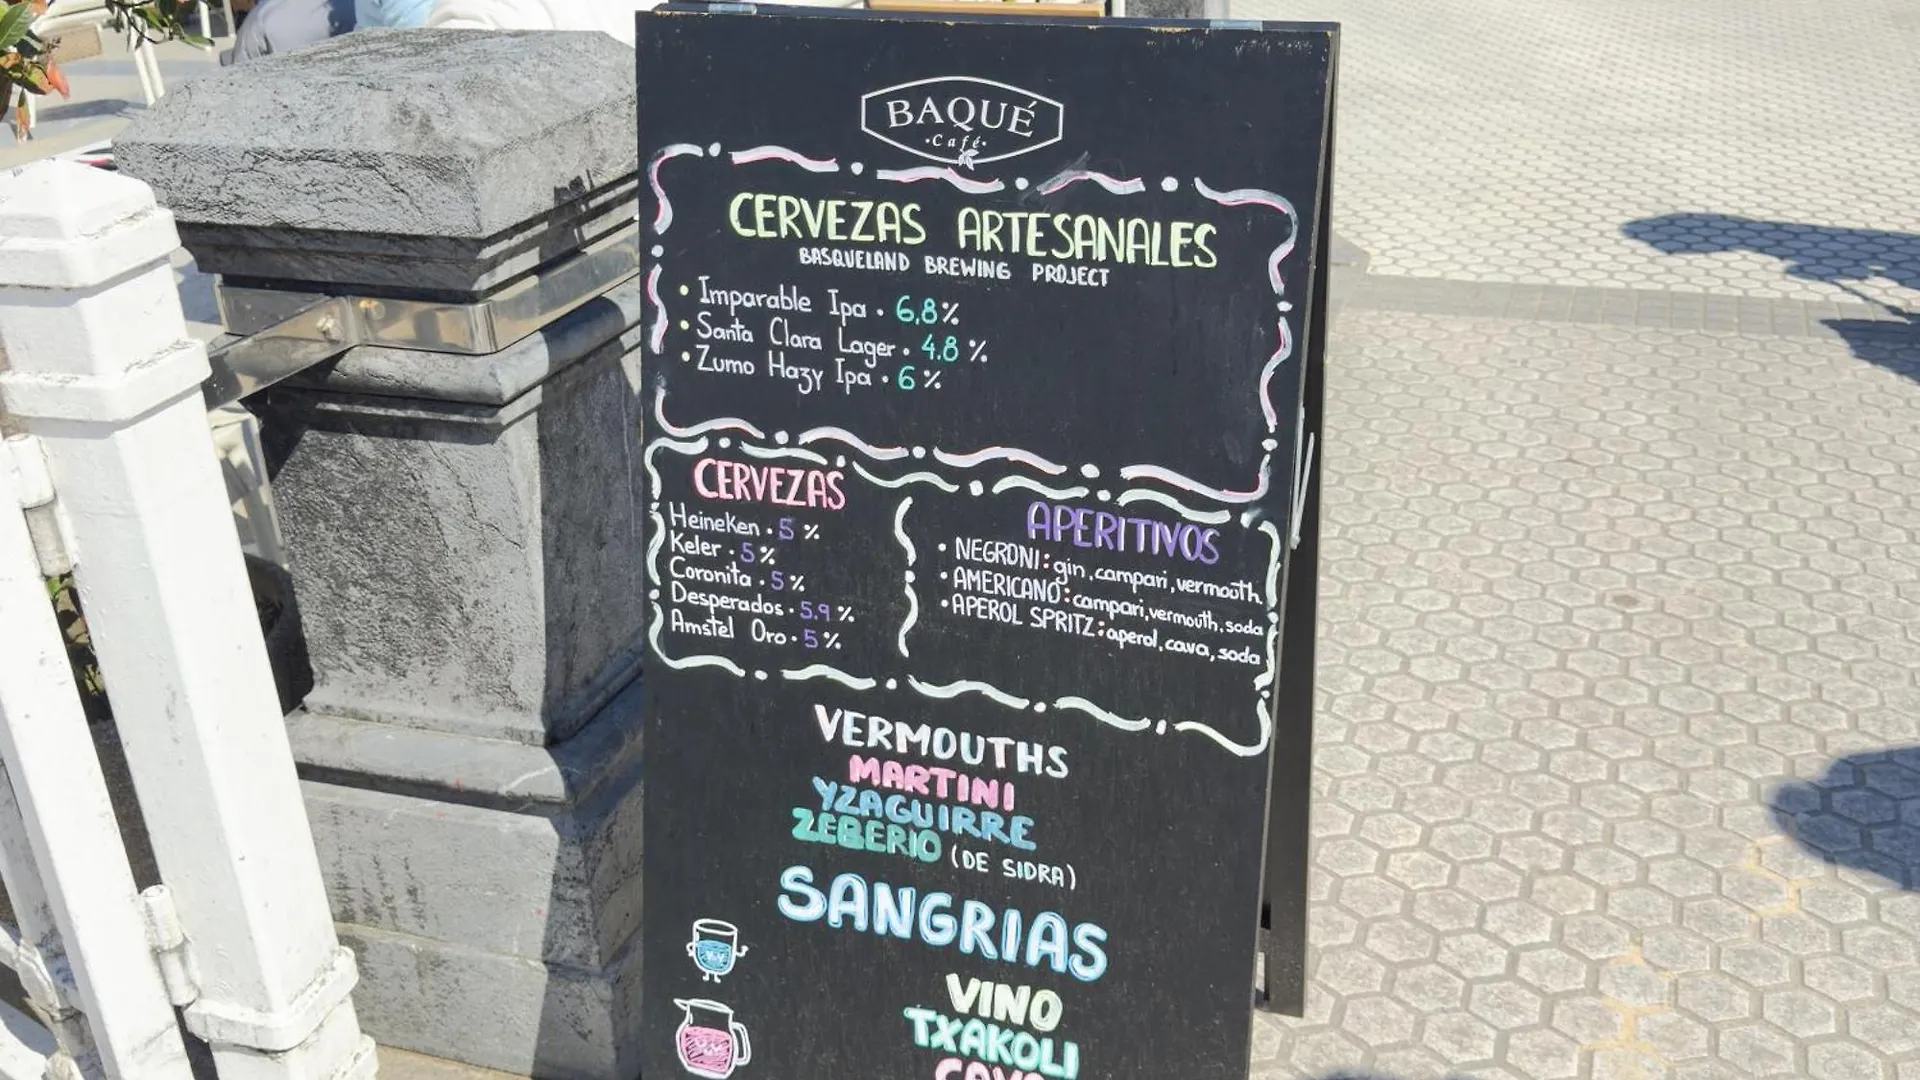 BAQUÉ
·Café·
CERVEZAS ARTESANALES
BASQUELAND BREWING PROJECT
• Imparable Ipa • 6,8%
• Santa Clara Lager • 4.8 %
• Zumo Hazy Ipa • 6 %
CERVEZAS
Heineken • 5 %
Keler • 5 %
Coronita • 5 %
Desperados • 5.9 %
Amstel Oro • 5 %
APERITIVOS
• NEGRONI: gin, campari, vermouth.
• AMERICANO: campari, vermouth, soda
• APEROL SPRITZ: aperol, cava, soda
VERMOUTHS
MARTINI
YZAGUIRRE
ZEBERIO (DE SIDRA)
SANGRIAS
VINO
TXAKOLI
CAVA